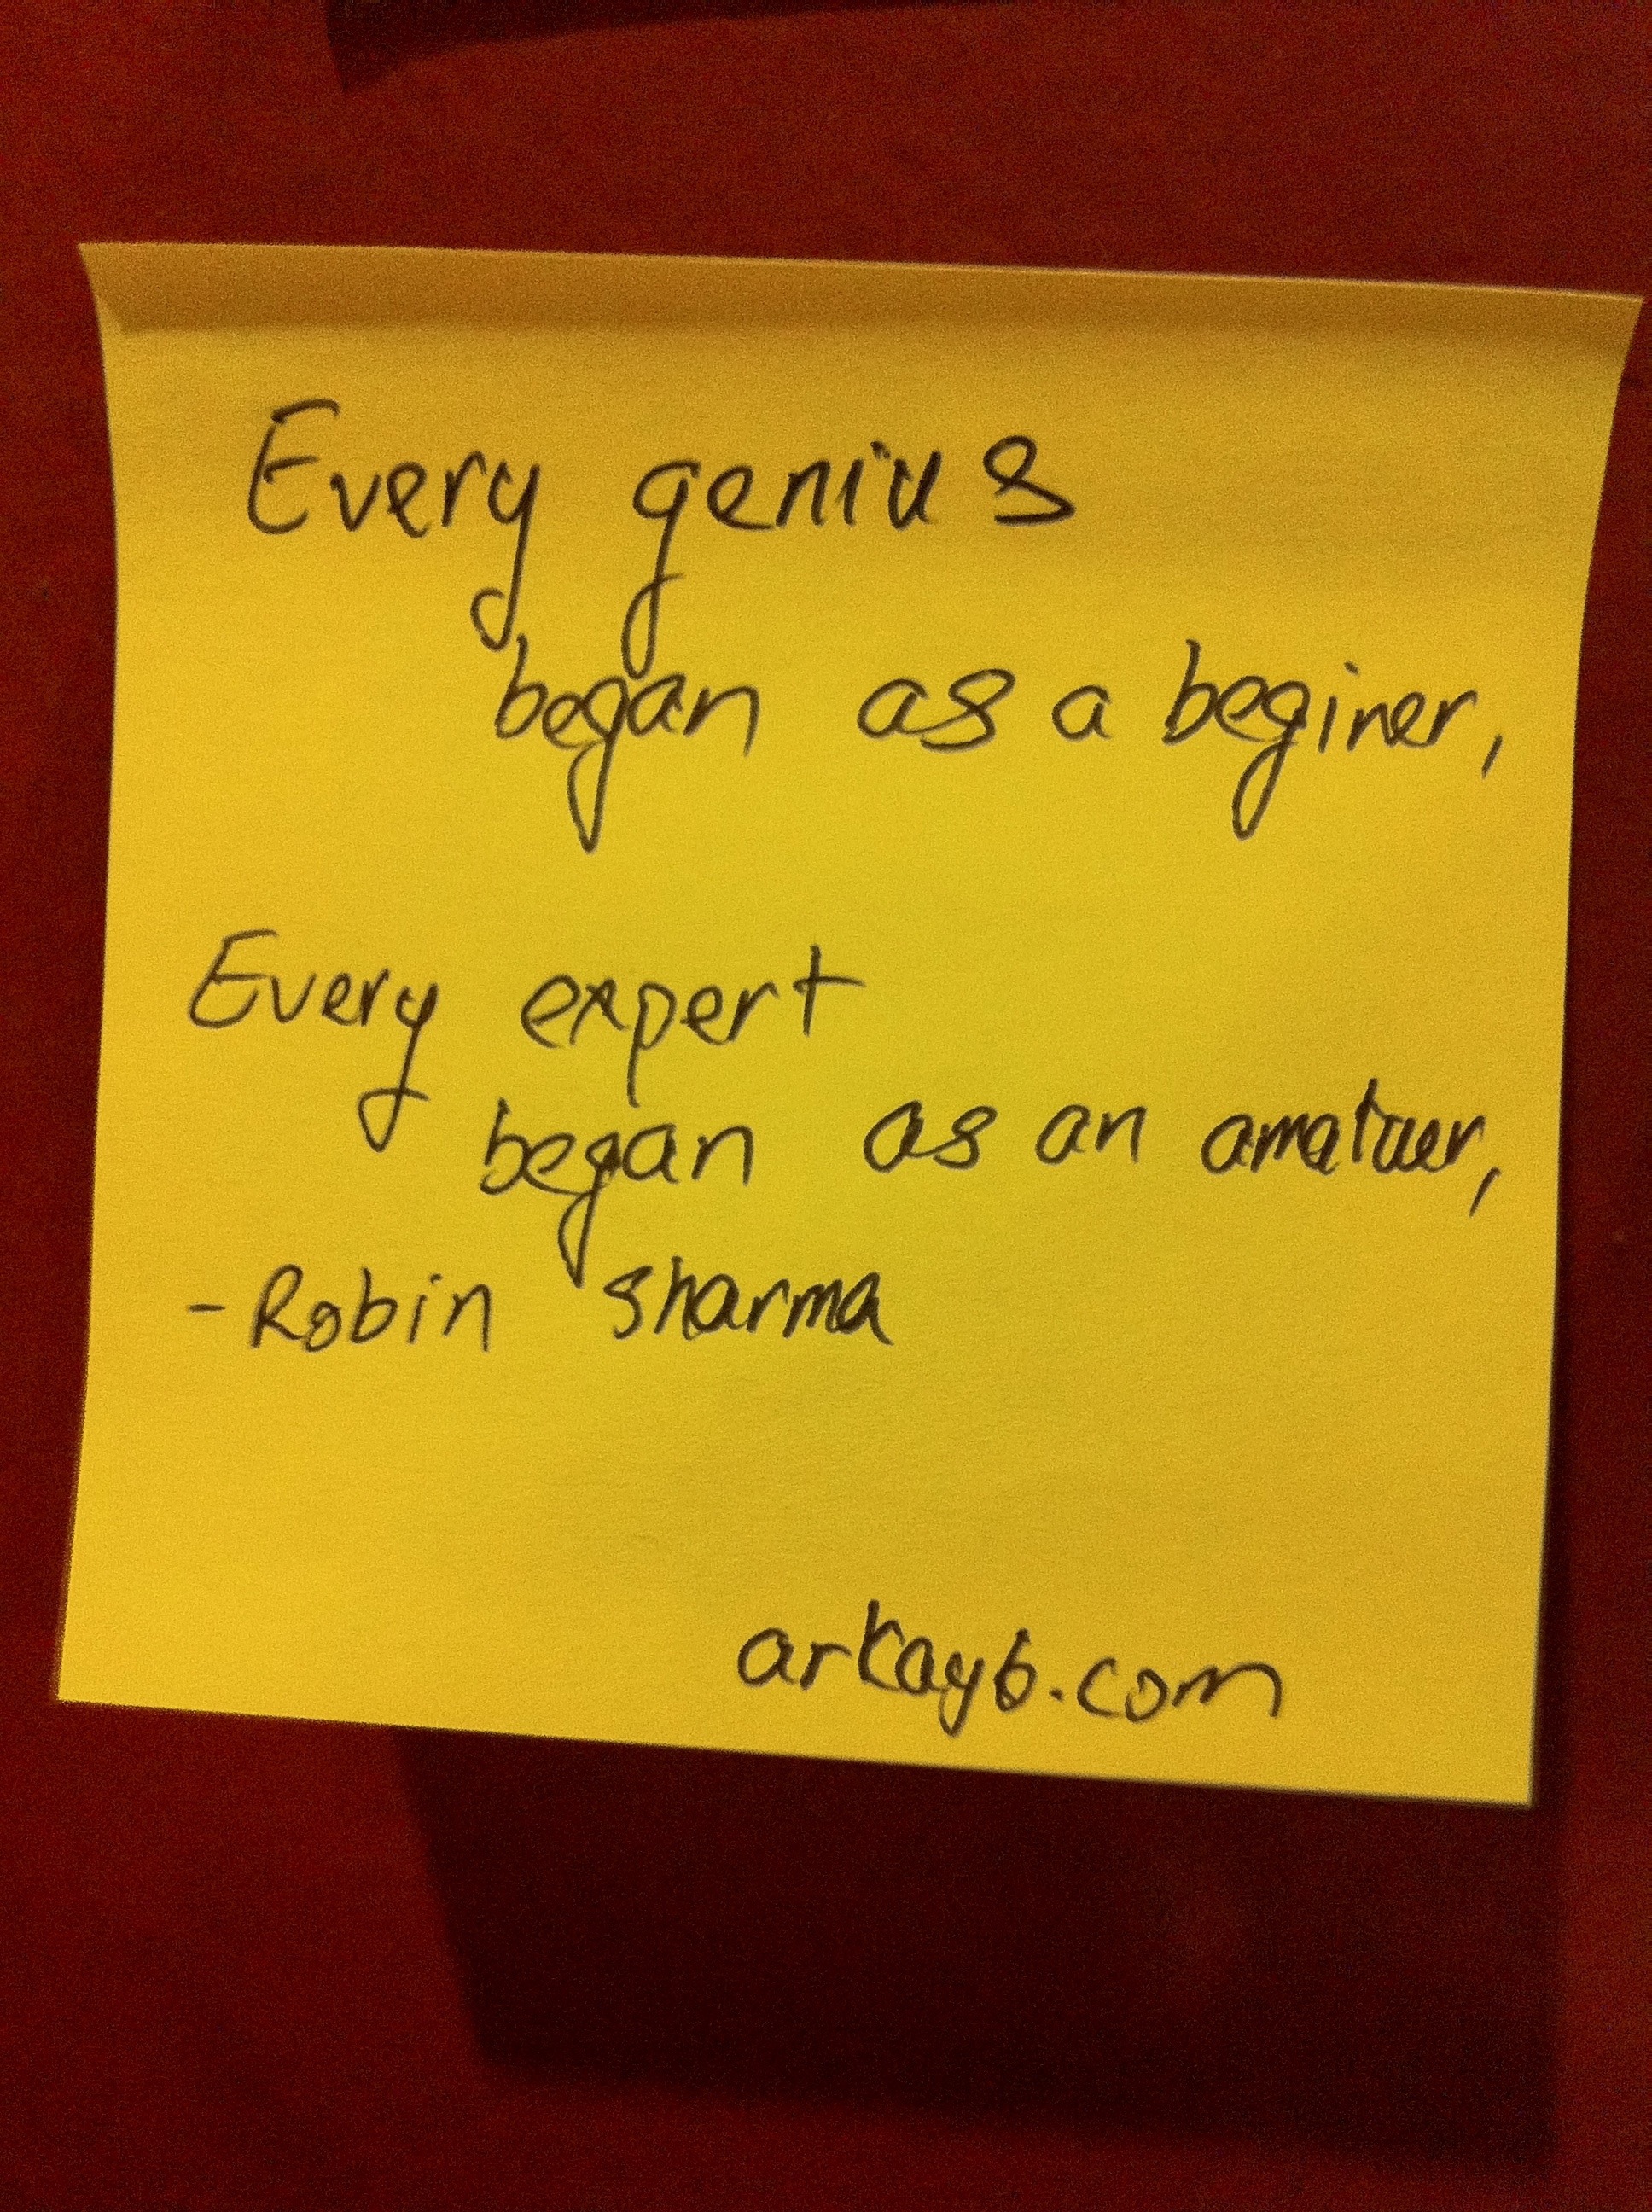 Every genius
began as a beginer,
Every expert
began as an amatuer,
- Robin Sharma
arkayb.com